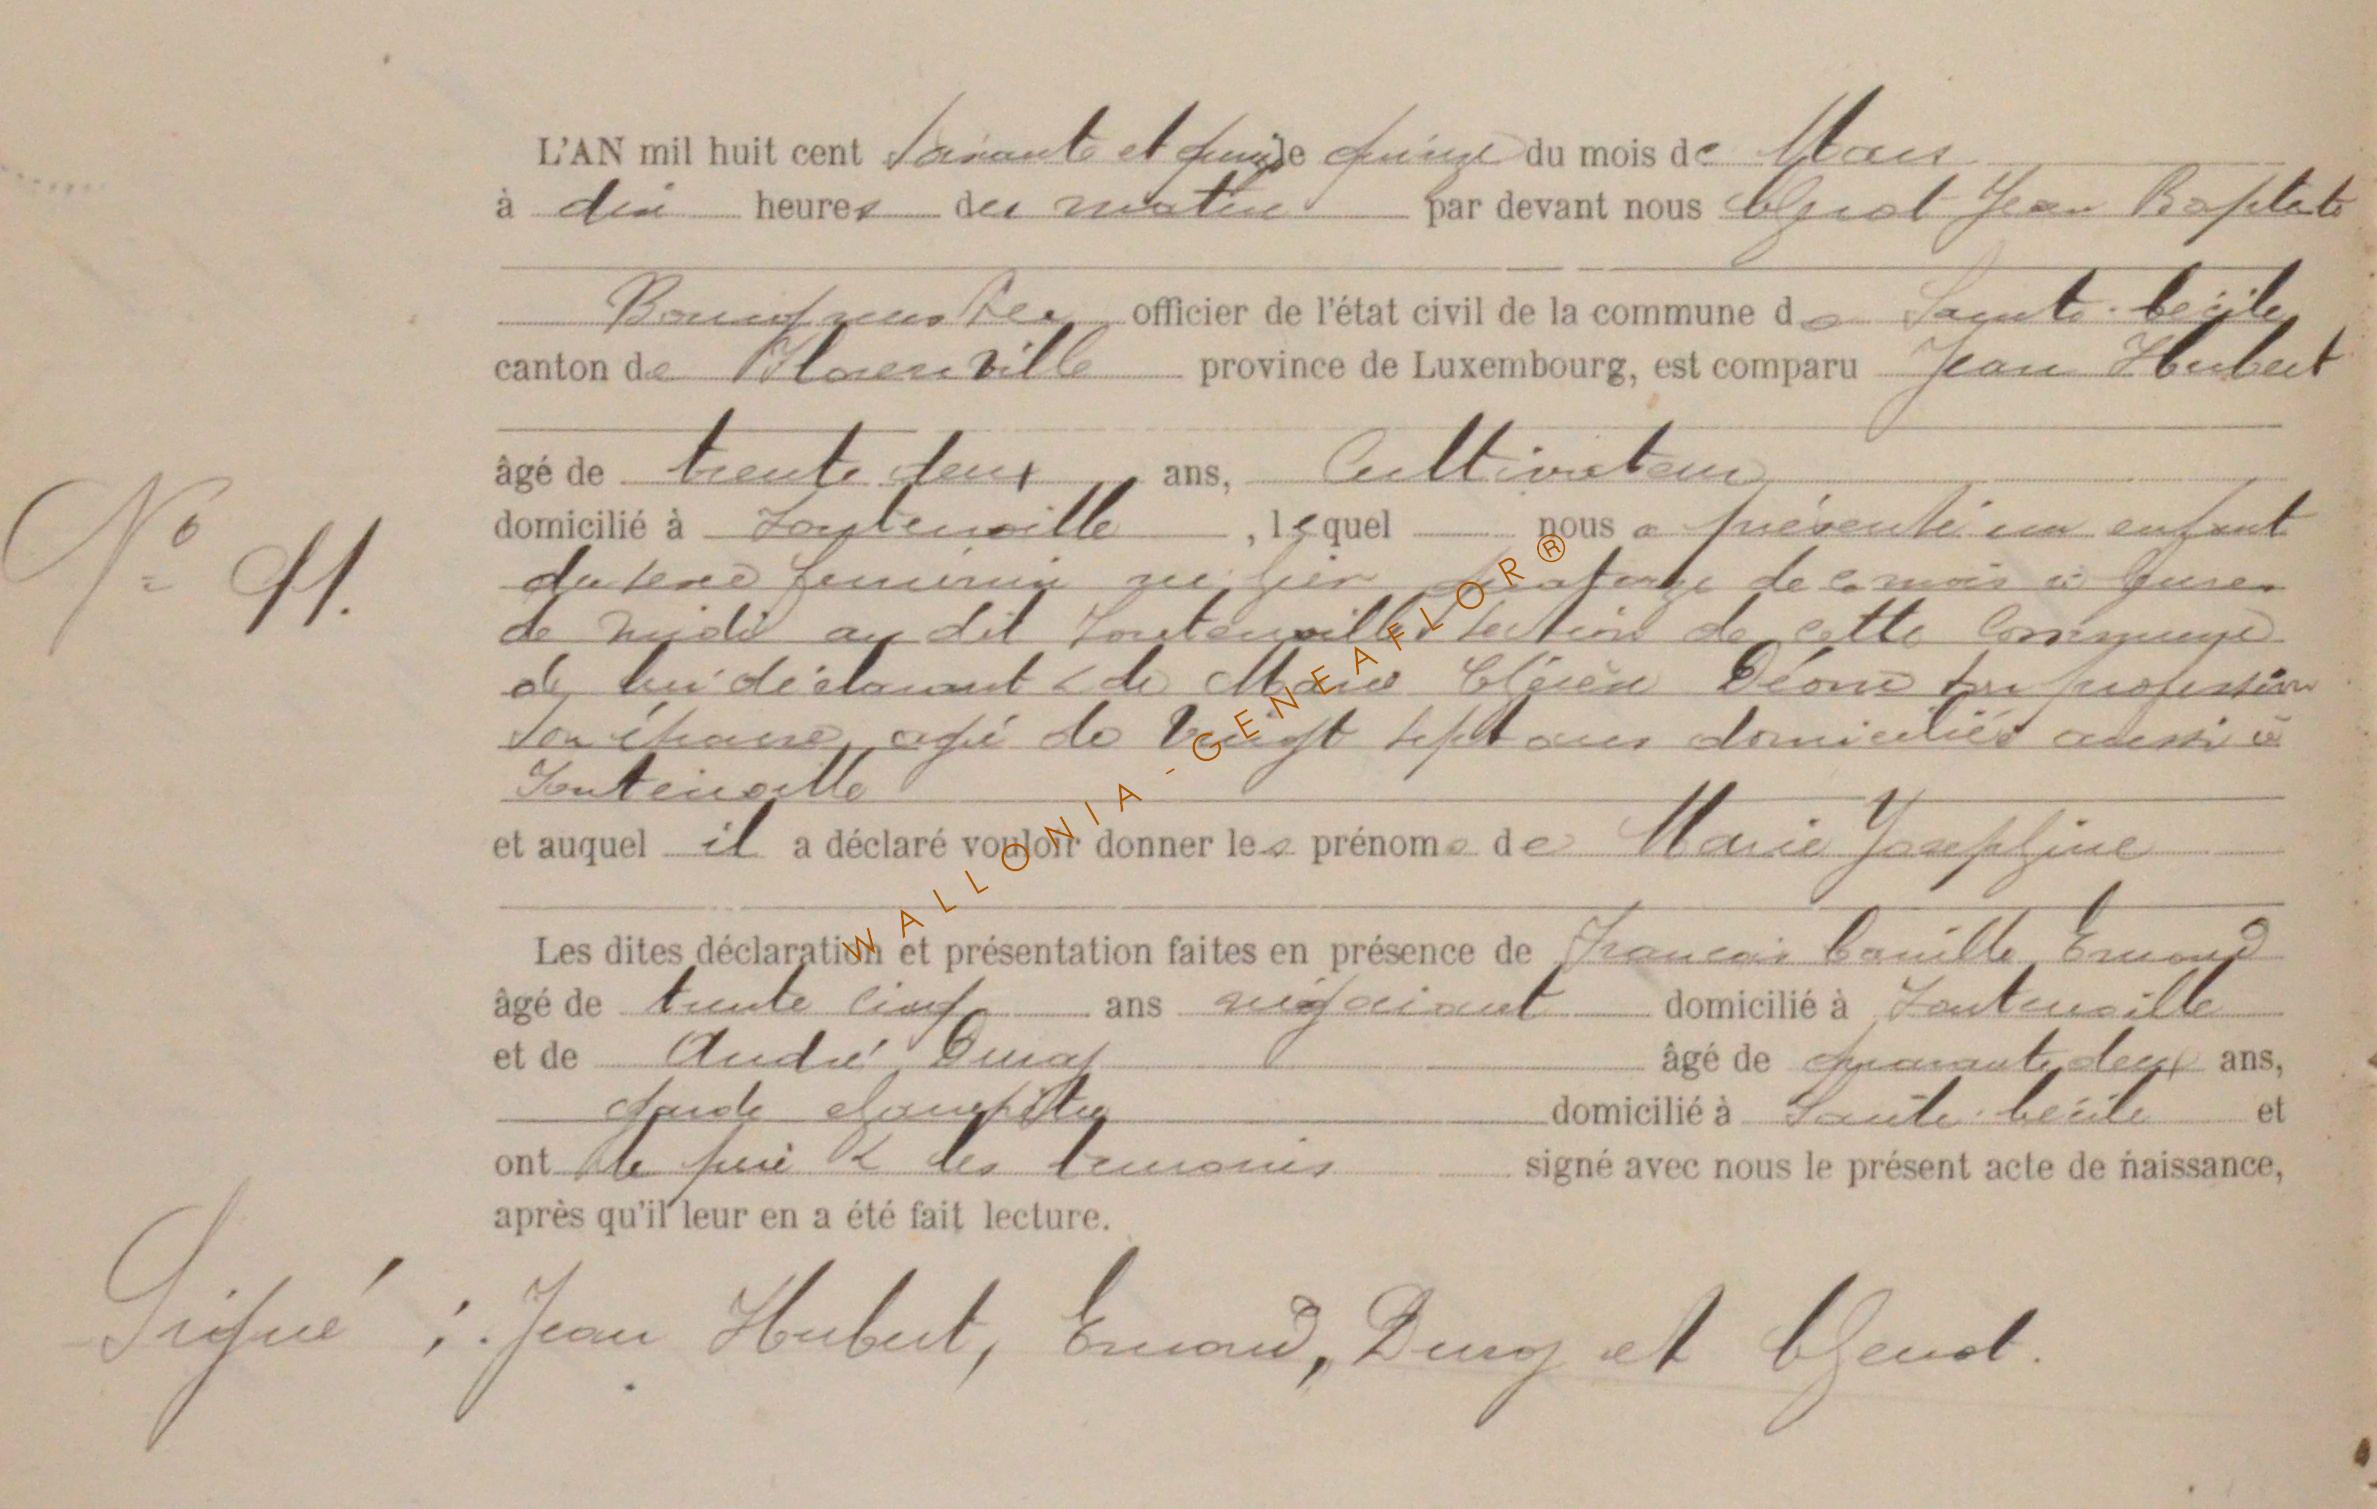 L'AN mil huit cent soixante et quinze le quinze du mois de Mars
à dix heures du matin par devant nous Jean Baptiste
Bourgmestre officier de l'état civil de la commune de Sainte-Cécile
canton de Florenville province de Luxembourg, est comparu Jean Hubert
âgé de trente deux ans, Cultivateur
N° 11.
domicilié à Fontenoille, lequel nous a présenté un enfant
du sexe feminin né hier quatorze de ce mois à heures
de midi au dit Fontenoille section de cette commune
de lui déclarant & de Marie Déom sa profession
son épouse, agé de vingt sept ans domiciliés aussi à
Fontenoille
et auquel il a déclaré vouloir donner les prénoms de Marie Josephine
Les dites déclaration et présentation faites en présence de Francois Camille Emond
âgé de trente cinq ans négociant domicilié à Fontenoille
et de André Duroy âgé de quarante deux ans,
garde champêtre domicilié à Sainte-Cécile et
ont le père & les temoins signé avec nous le présent acte de naissance,
après qu'il leur en a été fait lecture.
Signé : Jean Hubert, Emond, Duroy et
WALLONIA - GENEAFLOR®